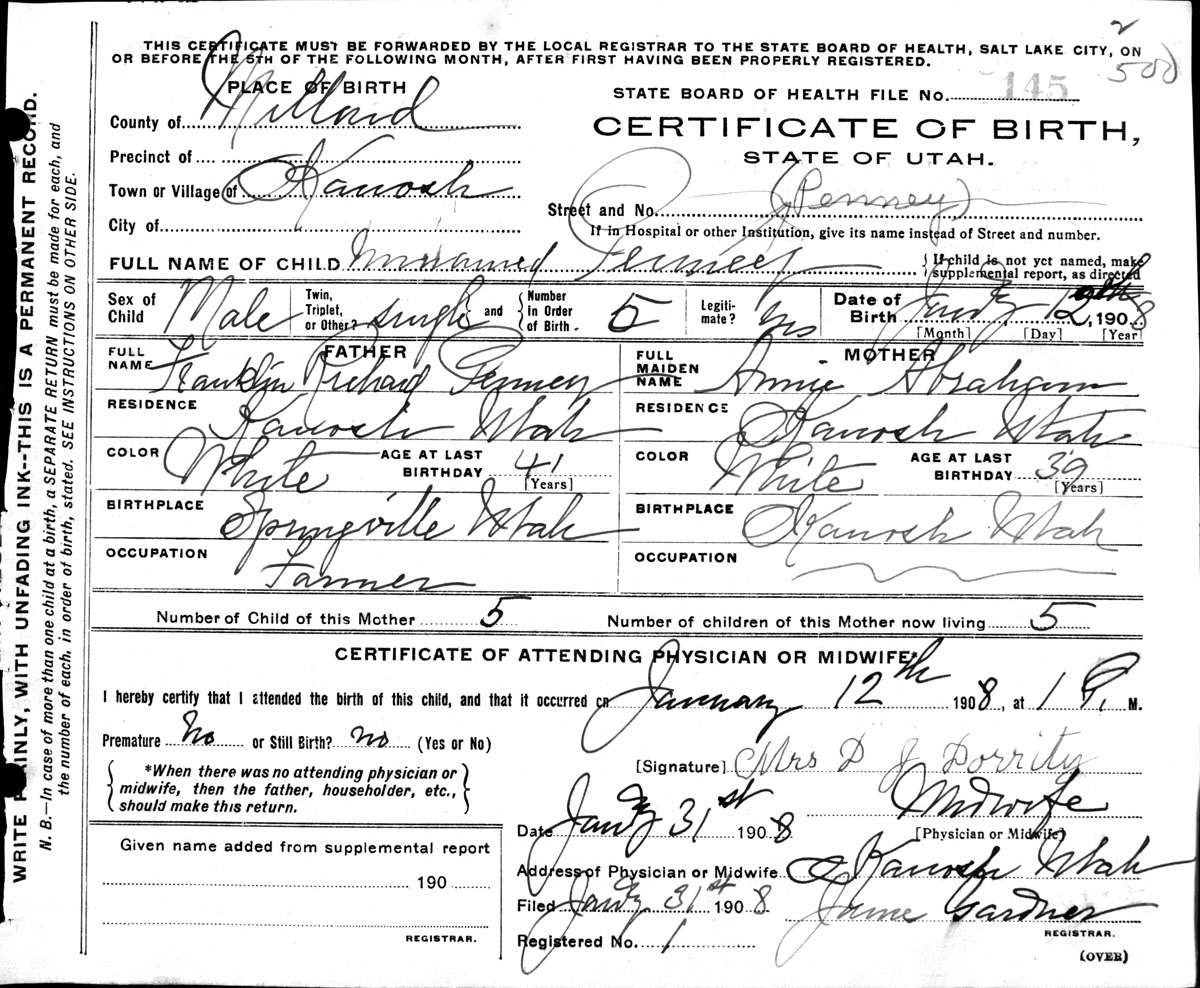 2
THIS CERTIFICATE MUST BE FORWARDED BY THE LOCAL REGISTRAR TO THE STATE BOARD OF HEALTH, SALT LAKE CITY, ON
OR BEFORE THE 5TH OF THE FOLLOWING MONTH, AFTER FIRST HAVING BEEN PROPERLY REGISTERED.
500
PLACE OF BIRTH
STATE BOARD OF HEALTH FILE No. 145
County of Millard
CERTIFICATE OF BIRTH,
STATE OF UTAH.
Precinct of
Town or Village of Kanosh
Street and No. (Penney)
City of
If in Hospital or other Institution, give its name instead of Street and number.
FULL NAME OF CHILD Unnamed Penney
{If child is not yet named, make
supplemental report, as directed
Sex of Child Male
Twin, Triplet, or Other? single and {Number in Order of Birth 5
Legitimate? Yes
Date of Birth Jany 12th, 1908
[Month] [Day] [Year]
FATHER
FULL NAME Franklin Richard Penney
RESIDENCE Kanosh Utah
COLOR White
AGE AT LAST BIRTHDAY 41
[Years]
BIRTHPLACE Springville Utah
OCCUPATION Farmer
MOTHER
FULL MAIDEN NAME Annie Abraham
RESIDENCE Kanosh Utah
COLOR White
AGE AT LAST BIRTHDAY 39
[Years]
BIRTHPLACE Kanosh Utah
OCCUPATION
Number of Child of this Mother 5
Number of children of this Mother now living 5
CERTIFICATE OF ATTENDING PHYSICIAN OR MIDWIFE*
I hereby certify that I attended the birth of this child, and that it occurred on January 12th 1908, at 1 P. M.
Premature No or Still Birth? no (Yes or No)
{*When there was no attending physician or
midwife, then the father, householder, etc.,
should make this return.}
[Signature] Mrs D J Dorrity
Midwife
[Physician or Midwife]
Date Jany 31st 1908
Address of Physician or Midwife Kanosh Utah
Filed Jany 31st 1908
Jame Gardner
REGISTRAR.
Registered No. 1
(OVER)
Given name added from supplemental report
190
REGISTRAR.
WRITE PLAINLY, WITH UNFADING INK--THIS IS A PERMANENT RECORD.
N. B.—In case of more than one child at a birth, a SEPARATE RETURN must be made for each, and
the number of each, in order of birth, stated. SEE INSTRUCTIONS ON OTHER SIDE.